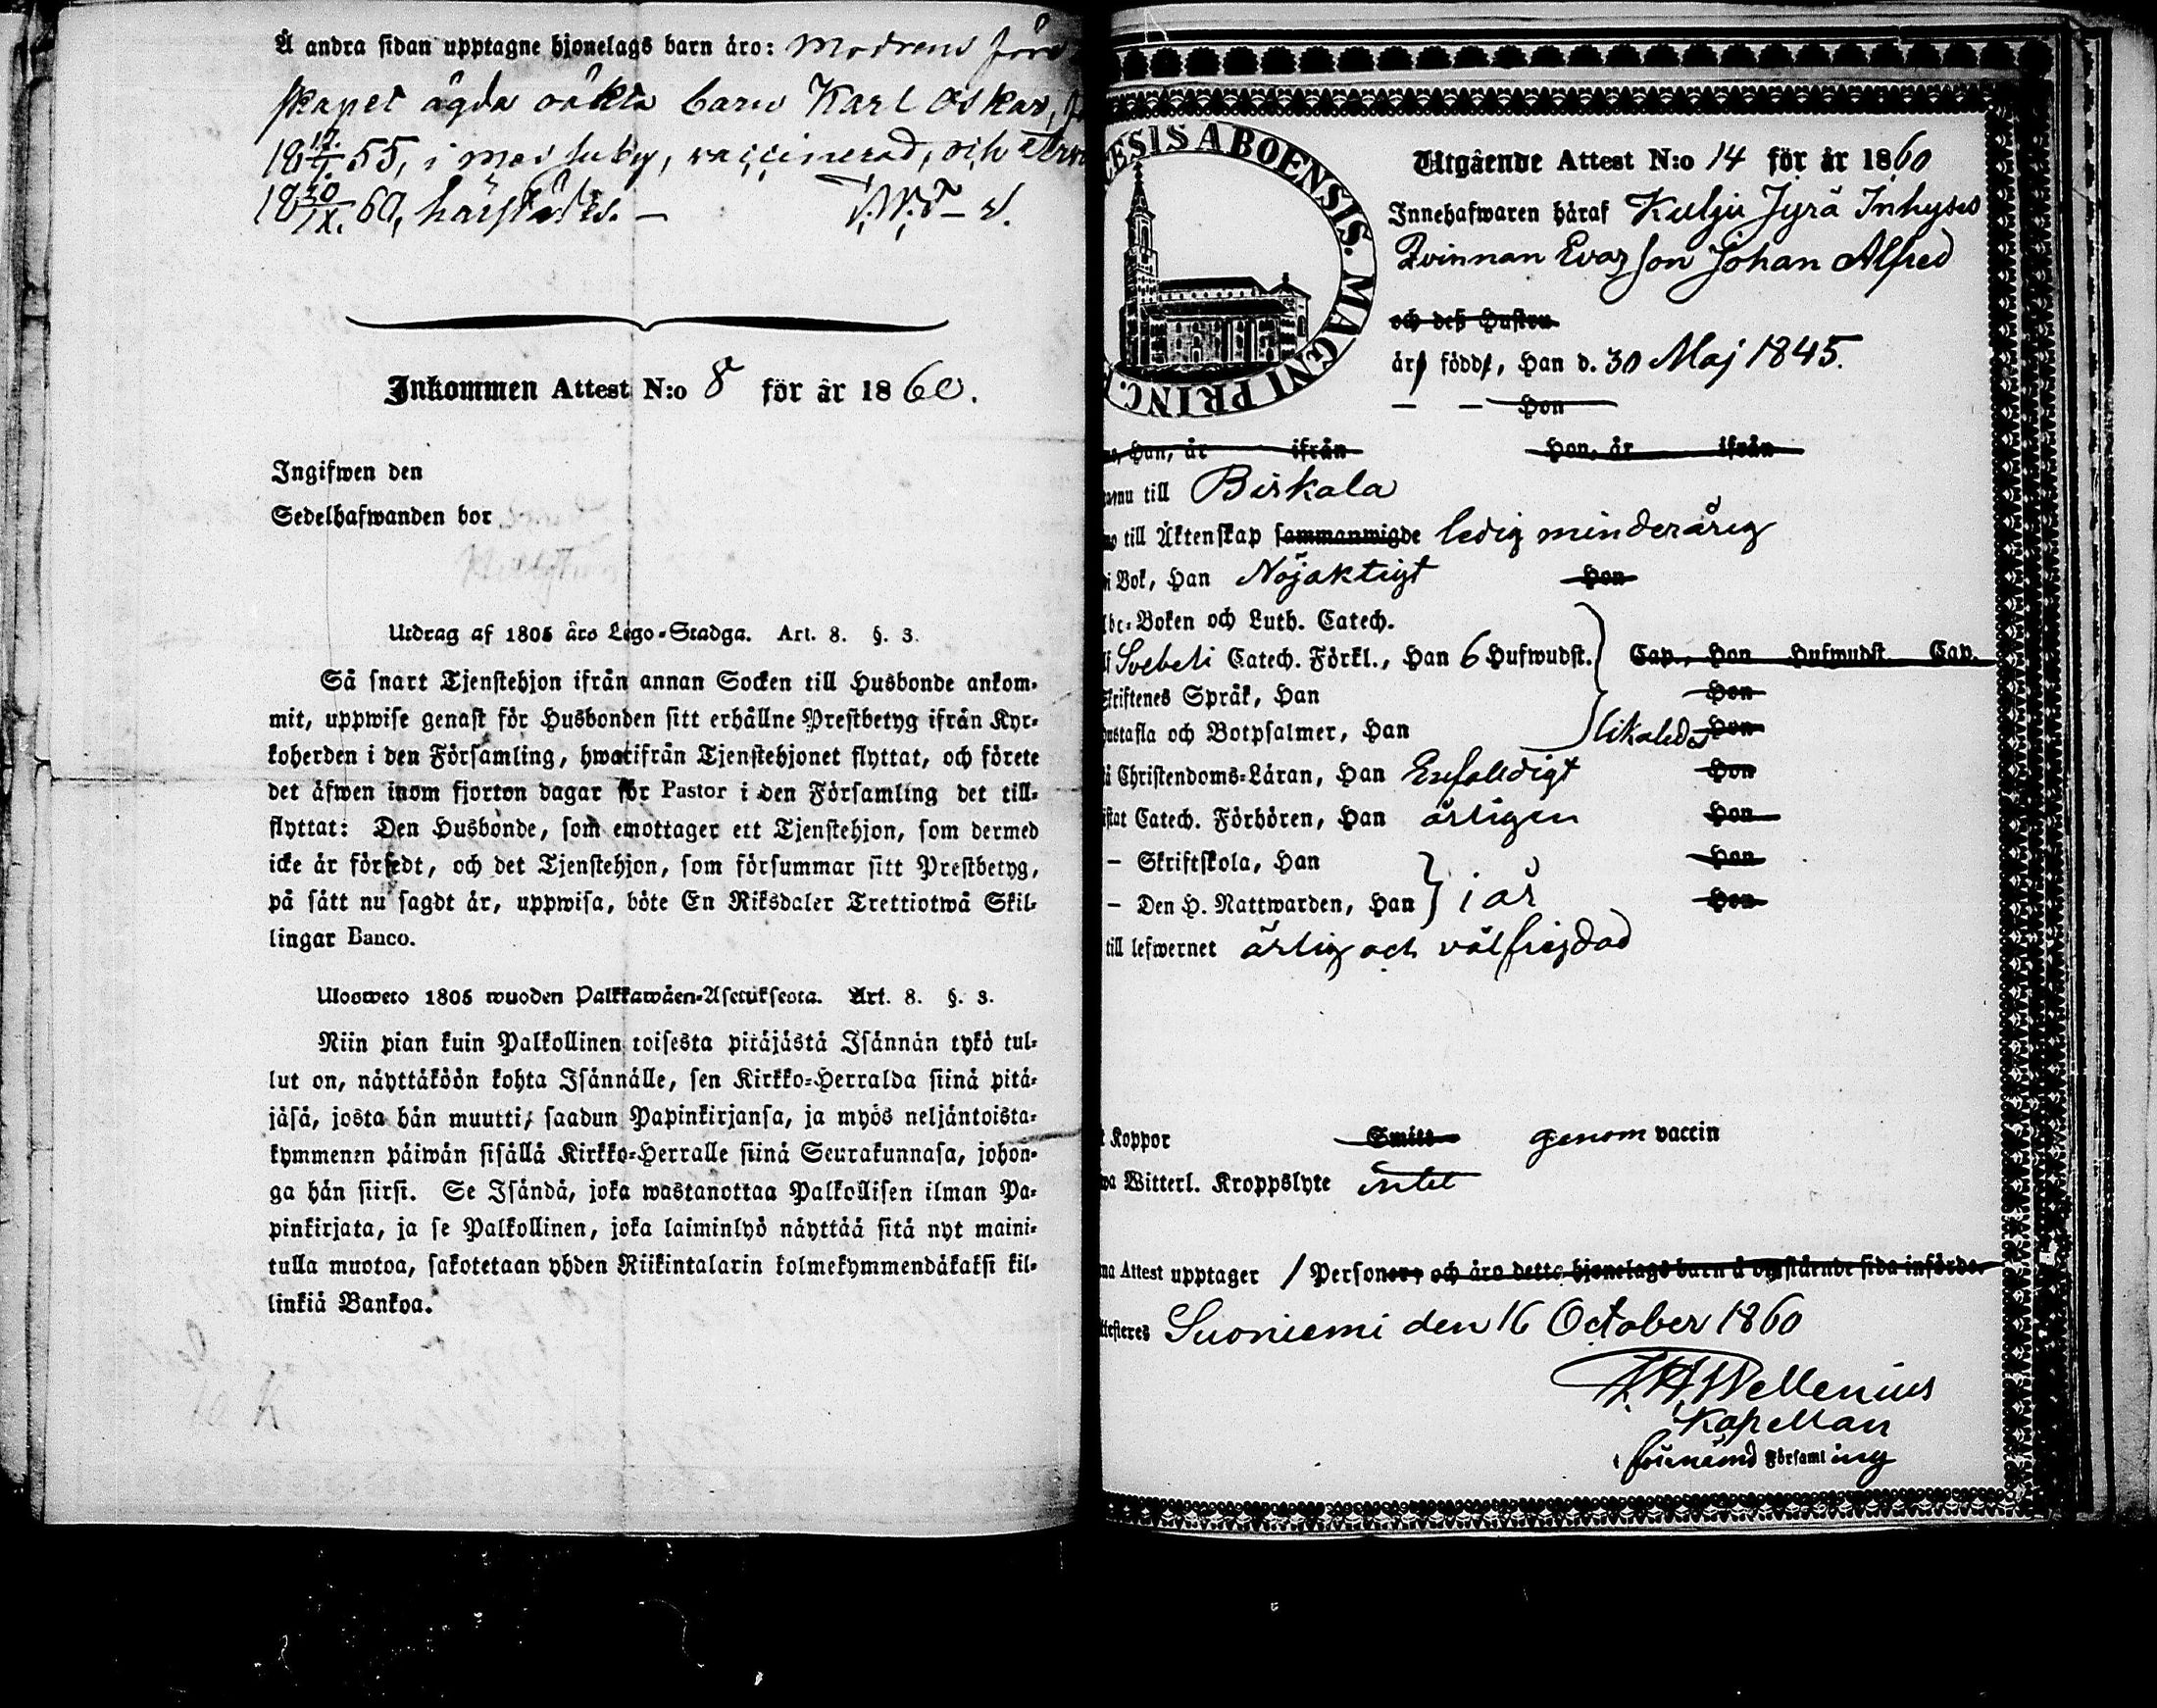 Å andra sidan upptagne hjonelags barn äro: modrens före
skapet ägda oäkta barn Karl Oskar,
18 17/ 55, i , vaccinerad, och
18 30/IX. 60, härstädes. —
Inkommen Attest N:o 8 för år 1860.
Ingifwen den
Sedelhafwanden bor
Utdrag af 1805 års Lego-Stadga. Art. 8. §. 3.
Så snart Tjenstehjon ifrån annan Socken till Husbonde ankom-
mit, uppwise genast för Husbonden sitt erhållne Prestbetyg ifrån Kyr-
koherden i den Församling, hwarifrån Tjenstehjonet flyttat, och förete
det äfwen inom fjorton dagar för Pastor i den Församling det till-
flyttat: Den Husbonde, som emottager ett Tjenstehjon, som dermed
icke är försedt, och det Tjenstehjon, som försummar sitt Prestbetyg,
på sätt nu sagdt är, uppwisa, böte En Riksdaler Trettiotwå Skil-
lingar Banco.
Ulosweto 1805 wuoden Palkkawäen-Asetuksesta. Art. 8. §. 3.
Niin pian kuin Palkollinen toisesta pitäjästä Isännän tykö tul-
lut on, näyttäköön kohta Isännälle, sen Kirkko-Herralda siinä pitä-
jäsä, josta hän muutti, saadun Papinkirjansa, ja myös neljäntoista-
kymmenen päiwän sisällä Kirkko-Herralle siinä Seurakunnasa, johon-
ga hän siirsi. Se Isändä, joka wastanottaa Palkollisen ilman Pa-
pinkirjata, ja se Palkollinen, joka laiminlyö näyttää sitä nyt maini-
tulla muotoa, sakotetaan yhden Riikintalarin kolmekymmendäkaksi kil-
linkiä Bankoa.
ESIS ABOENSIS. MAGNI PRINC.
Utgående Attest N:o 14 för år 1860
Innehafwaren häraf Kulju Jyrä Inhyses
Qvinnan Evas son Johan Alfred
och dess Hustru
är född, Han d. 30 Maj 1845.
— — Hon
Han, är ifrån Hon, är ifrån
till Birkala
till Äktenskap sammanwigde ledig minderårig
i Bok, Han Nöjaktigt Hon
Boken och Luth. Catech.
Svebeli Catech. Förkl., Han 6 Hufwudst. Cap., Hon Hufwudst. Cap.
Skriftenes Språk, Han Hon
Hustafla och Botpsalmer, Han likaledes Hon
Christendoms-Läran, Han Enfaldigt Hon
Catech. Förhören, Han årligen Hon
— Skriftskola, Han Hon
— Den H. Nattwarden, Han } i år Hon
till lefwernet ärlig och välfrejdad
Koppor Smitt genom vaccin
Witterl. Kroppslyte intet
Attest upptager 1 Personer, och äro detta hjonelags barn å omstående sida införde.
Suoniemi den 16 October 1860
Wellenius
Kapellan
i förenämnd Församling